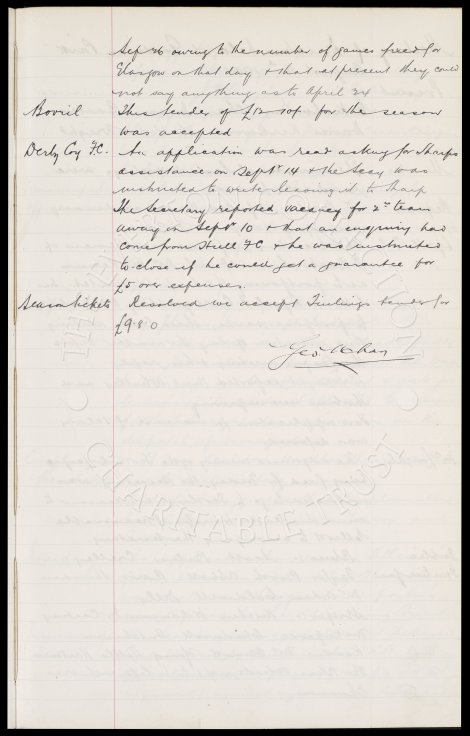 Sep 26 owing to the number of games fixed for
Glasgow on that day & that at present they could
not say anything as to April 24
Bovril Their tender of £12-10/- for the season
was accepted
Derby Coy F.C. An application was read asking for Sharps
assistance on Sept 14 & the Secy was
instructed to write leaving it to Sharp
The Secretary reported vacancy for 2nd team
away on Sept 10 & that an enquiry had
come from Hull F C & he was instructed
to close if he could get a guarantee for
£5 over expenses.
Season tickets Resolved we accept Tinlings tender for
£9.8.0
Geo. Mahon
CHARITABLE TRUST